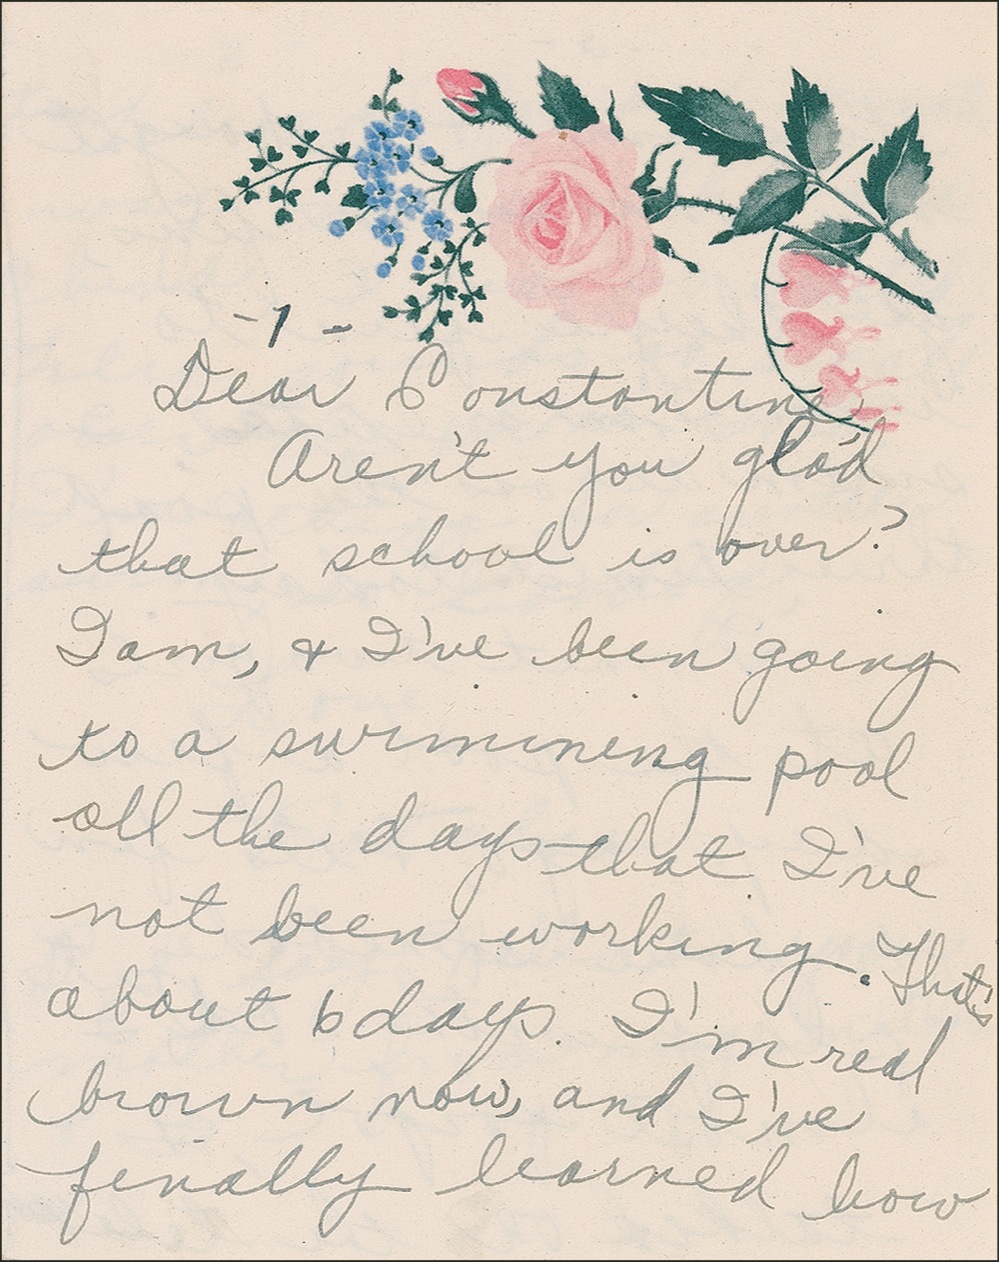 -1-
Dear Constantine
Aren't you glad
that school is over?
I am, & I've been going
to a swimming pool
all the days that I've
not been working. That's
about 6 days. I'm real
brown now, and I've
finally learned how